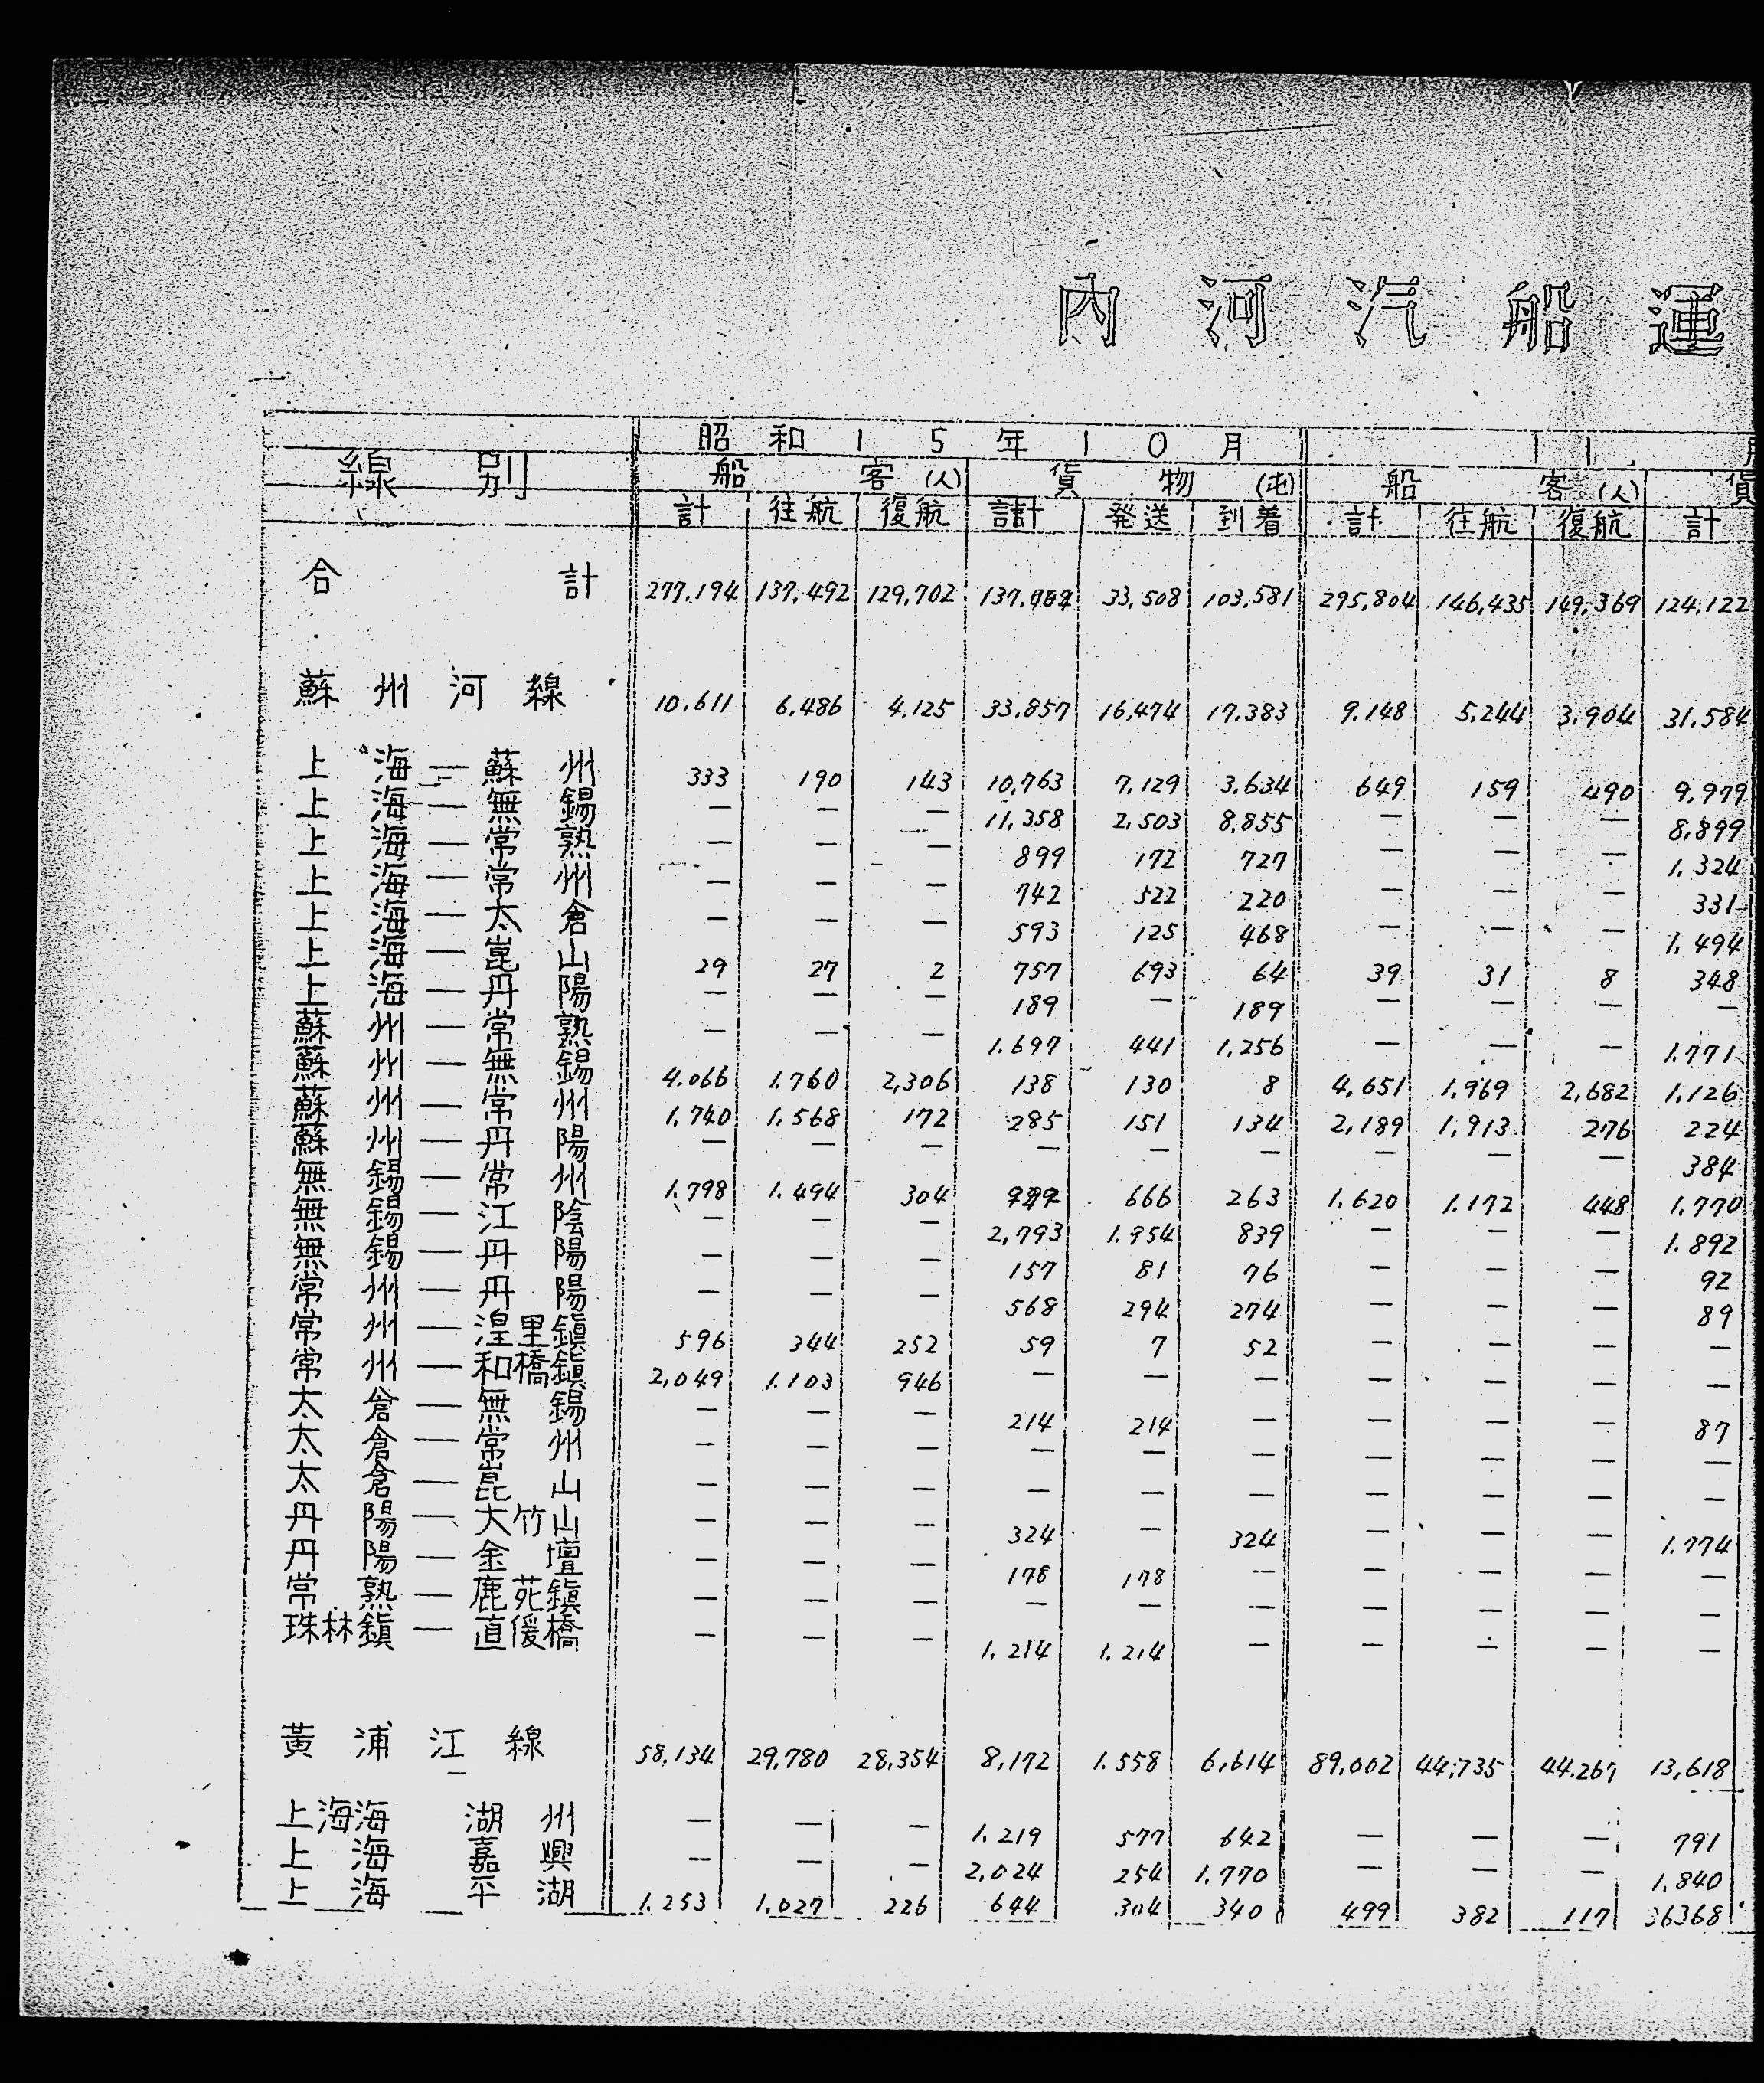 內河汽船運
線別 昭和15年10月 11月
船客(人) 貨物(屯) 船客(人) 貨
計 往航 復航 計 発送 到着 計 往航 復航 計
合計 277,194 137,492 129,702 33,508 103,581 295,804 146,435 149,369 124,122
蘇州河線 10,611 6,486 4,125 33,857 16,474 17,383 9,148 5,244 3,904 31,584
上海—蘇州 333 190 143 10,763 7,129 3,634 649 159 490 9,979
上海—無錫 — — — 11,358 2,503 8,855 — — — 8,899
上海—常熟 — — — 899 172 727 — — — 1,324
上海—常州 — — — 742 522 220 — — — 331
上海—太倉 — — — 593 125 468 — — — 1,494
上海—崑山 29 27 2 757 693 64 39 31 8 348
上海—丹陽 — — — 189 — 189 — — — —
蘇州—常熟 — — — 1,697 441 1,256 — — — 1,771
蘇州—無錫 4,066 1,760 2,306 138 130 8 4,651 1,969 2,682 1,126
蘇州—常州 1,740 1,568 172 285 151 134 2,189 1,913 276 224
蘇州—丹陽 — — — — — — — — — 384
無錫—常州 1,798 1,494 304 666 263 1,620 1,172 448 1,770
無錫—江陰 — — — 2,793 1,954 839 — — — 1,892
無錫—丹陽 — — — 157 81 76 — — — 92
常州—丹陽 — — — 568 294 274 — — — 89
常州—湟里鎭 596 344 252 59 7 52 — — — —
常州—和橋鎭 2,049 1,103 946 — — — — — — —
太倉—無錫 — — — 214 214 — — — — 87
太倉—常州 — — — — — — — — — —
太倉—崑山 — — — — — — — — — —
丹陽—大竹山 — — — 324 — 324 — — — 1,774
丹陽—金壇 — — — 178 178 — — — — —
常熟—鹿苑鎭 — — — — — — — — — —
珠林鎭—直僾橋 — — — 1,214 1,214 — — — — —
黃浦江線 58,134 29,780 28,354 8,172 1,558 6,614 89,002 44,735 44,267 13,618
上海海 湖州 — — — 1,219 577 642 — — — 791
上海 嘉興 — — — 2,024 254 1,770 — — — 1,840
上海 平湖 1,253 1,027 226 644 304 340 499 382 117 36368